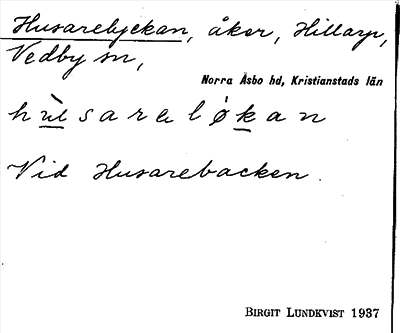 Husarelyckan, åker, Hillarp,
Vedby sn,
Norra Åsbo hd, Kristianstads län
hùsareløkan
Vid Husarebacken.
BIRGIT LUNDKVIST 1937